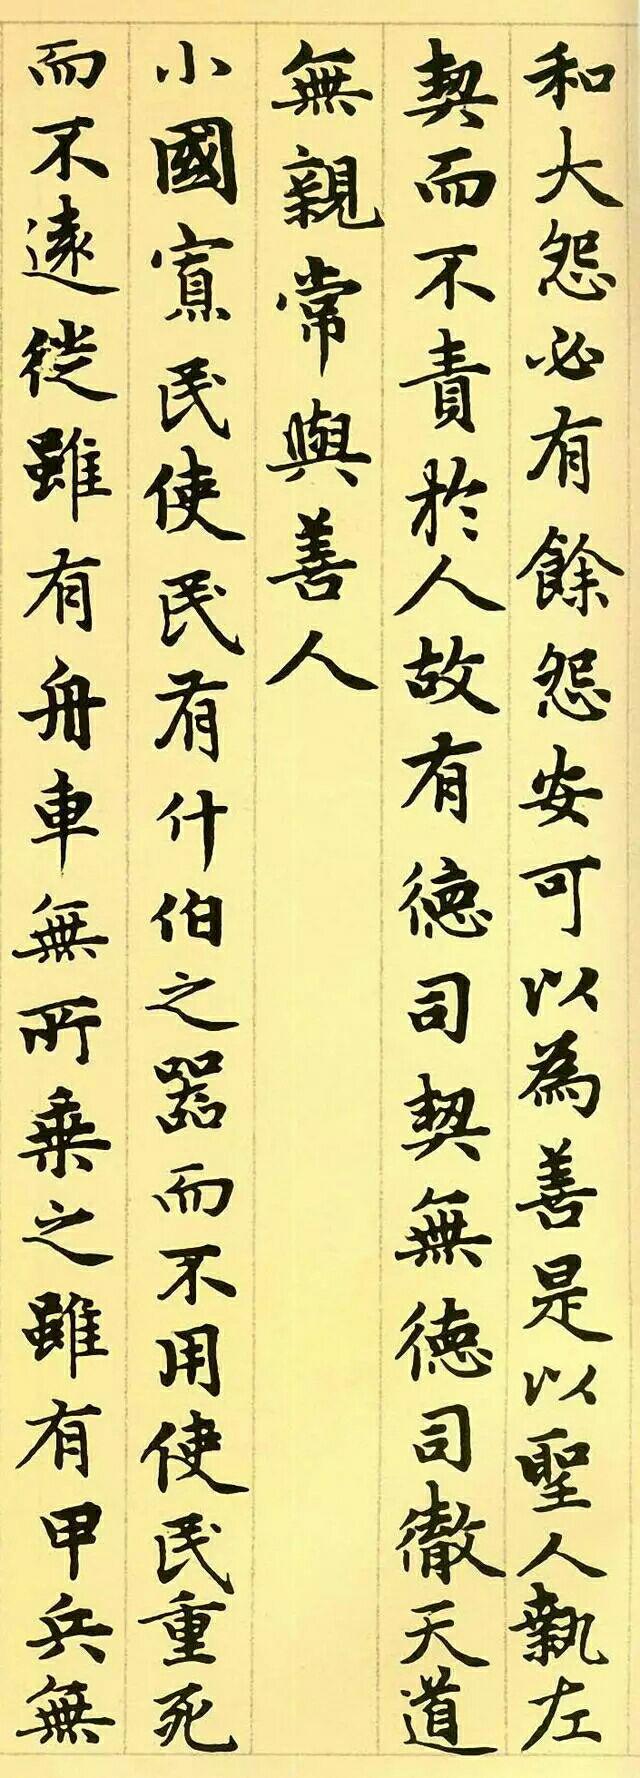 和大怨必有餘怨安可以為善是以聖人執左
契而不責於人故有德司契無德司徹天道
無親常與善人
小國寡民使民有什伯之器而不用使民重死
而不遠徙雖有舟車無所乗之雖有甲兵無